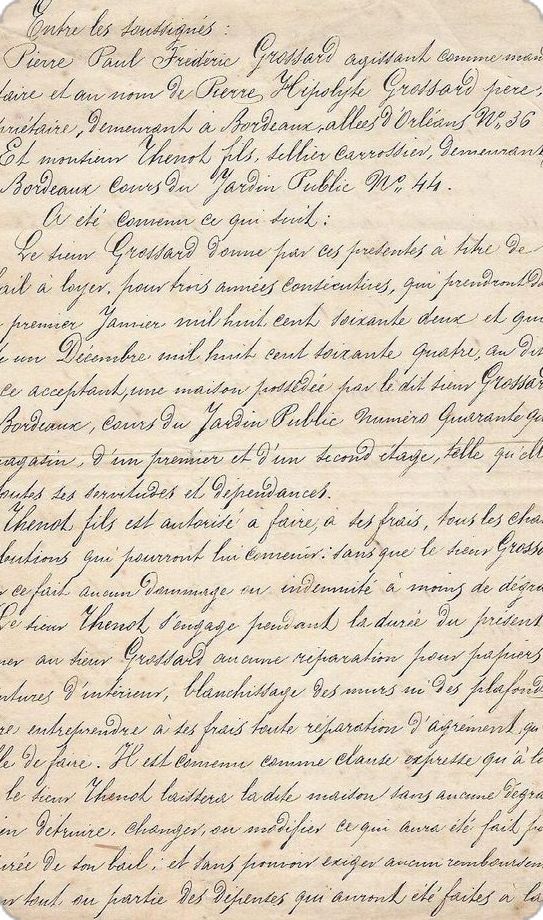 Entre les soussignés :
Pierre Paul Frédéric Grossard agissant comme man
taire et au nom de Pierre Hipolyte Grossard père,
priétaire, demeurant à Bordeaux, allées d'Orléans N°. 36
Et monsieur Thenot fils, sellier carrossier, demeurant
Bordeaux cours du Jardin Public N°. 44.
A été convenu ce qui suit :
Le sieur Grossard donne par ces présentes à titre de
ail à loyer, pour trois années consécutives, qui prendront
premier Janvier mil huit cent soixante deux et
un Décembre mil huit cent soixante quatre, au dit
ce acceptant, une maison possédée par le dit sieur Grossard
Bordeaux, cours du Jardin Public numéro quarante
magasin, d'un premier et d'un second étage, telle qu'elle
toutes ses servitudes et dépendances.
Thenot fils est autorisé à faire, à ses frais, tous les cha
butions qui pourront lui convenir : sans que le sieur Grossa
ce fait aucun dommage ou indemnité à moins de dégra
Le sieur Thenot s'engage pendant la durée du présent
ner au sieur Grossard aucune réparation pour papiers
ntures d'intérieur, blanchissage des murs ni des plafonds
re entreprendre à ses frais toute réparation d'agrément, qu
le de faire. Il est convenu comme clause expresse qu'à l
le sieur Thenot laissera la dite maison sans aucune dégra
en détruire, changer, ou modifier ce qui aura été fait, p
urée de son bail ; et sans pouvoir exiger aucun remboursem
tout ou partie des dépenses qui auront été faites à la